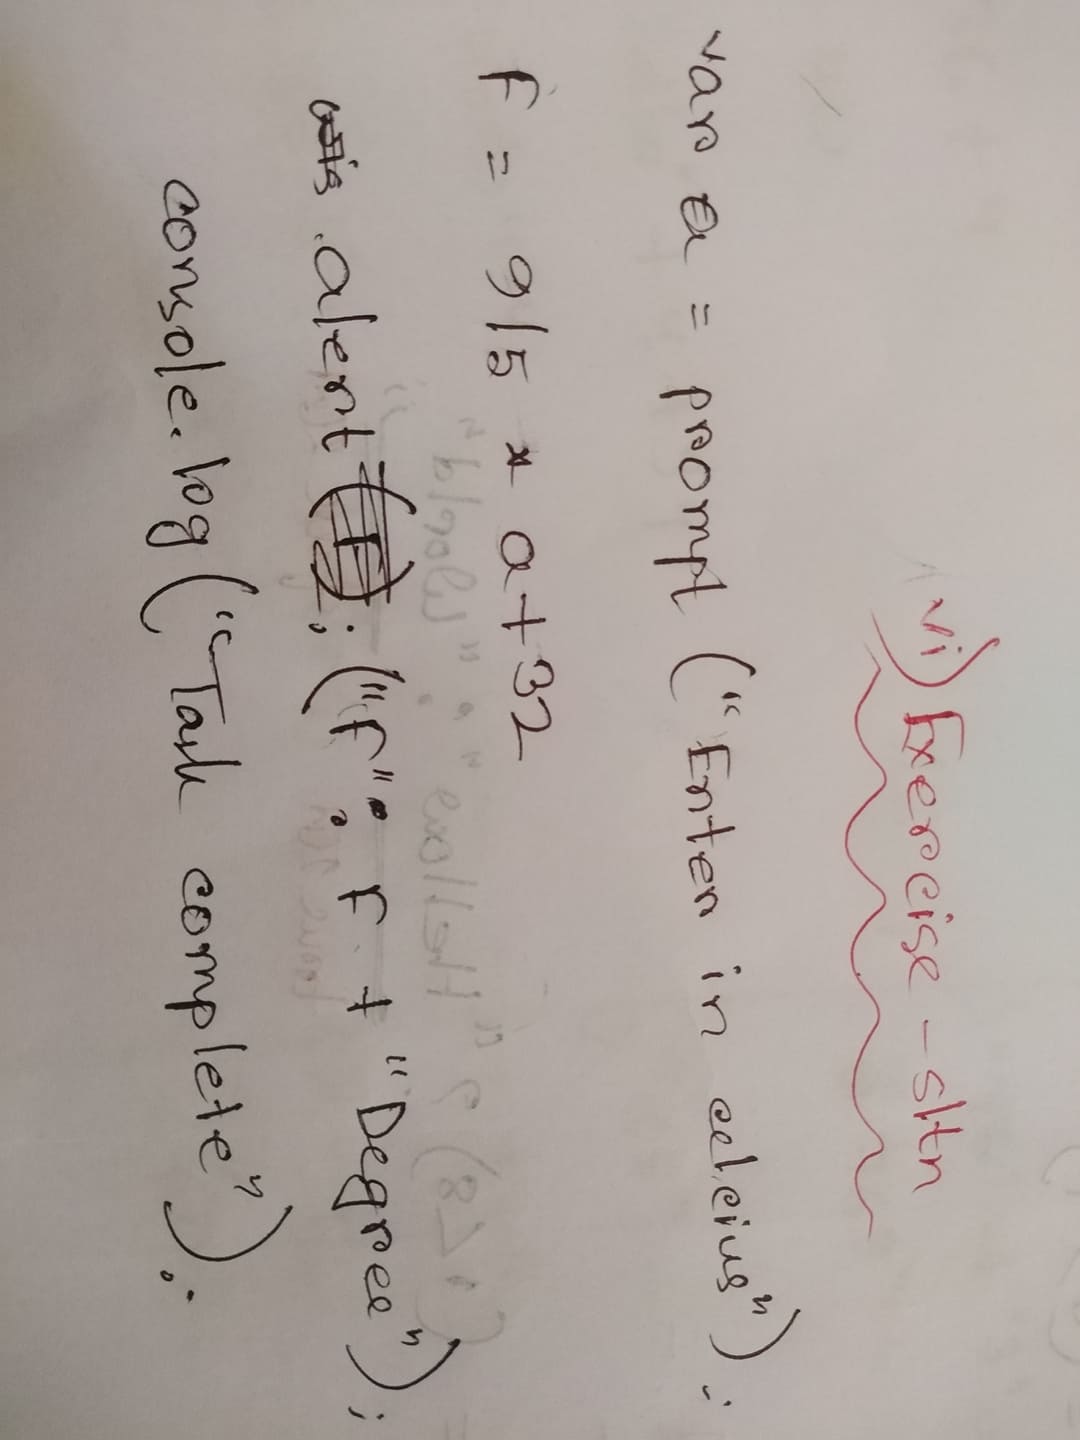 vi) Exercise - sltn
var a = prompt ("Enter in celcius");
F = 9/5 * a + 32
alert ("F": F + "Degree");
console.log ("Task complete");